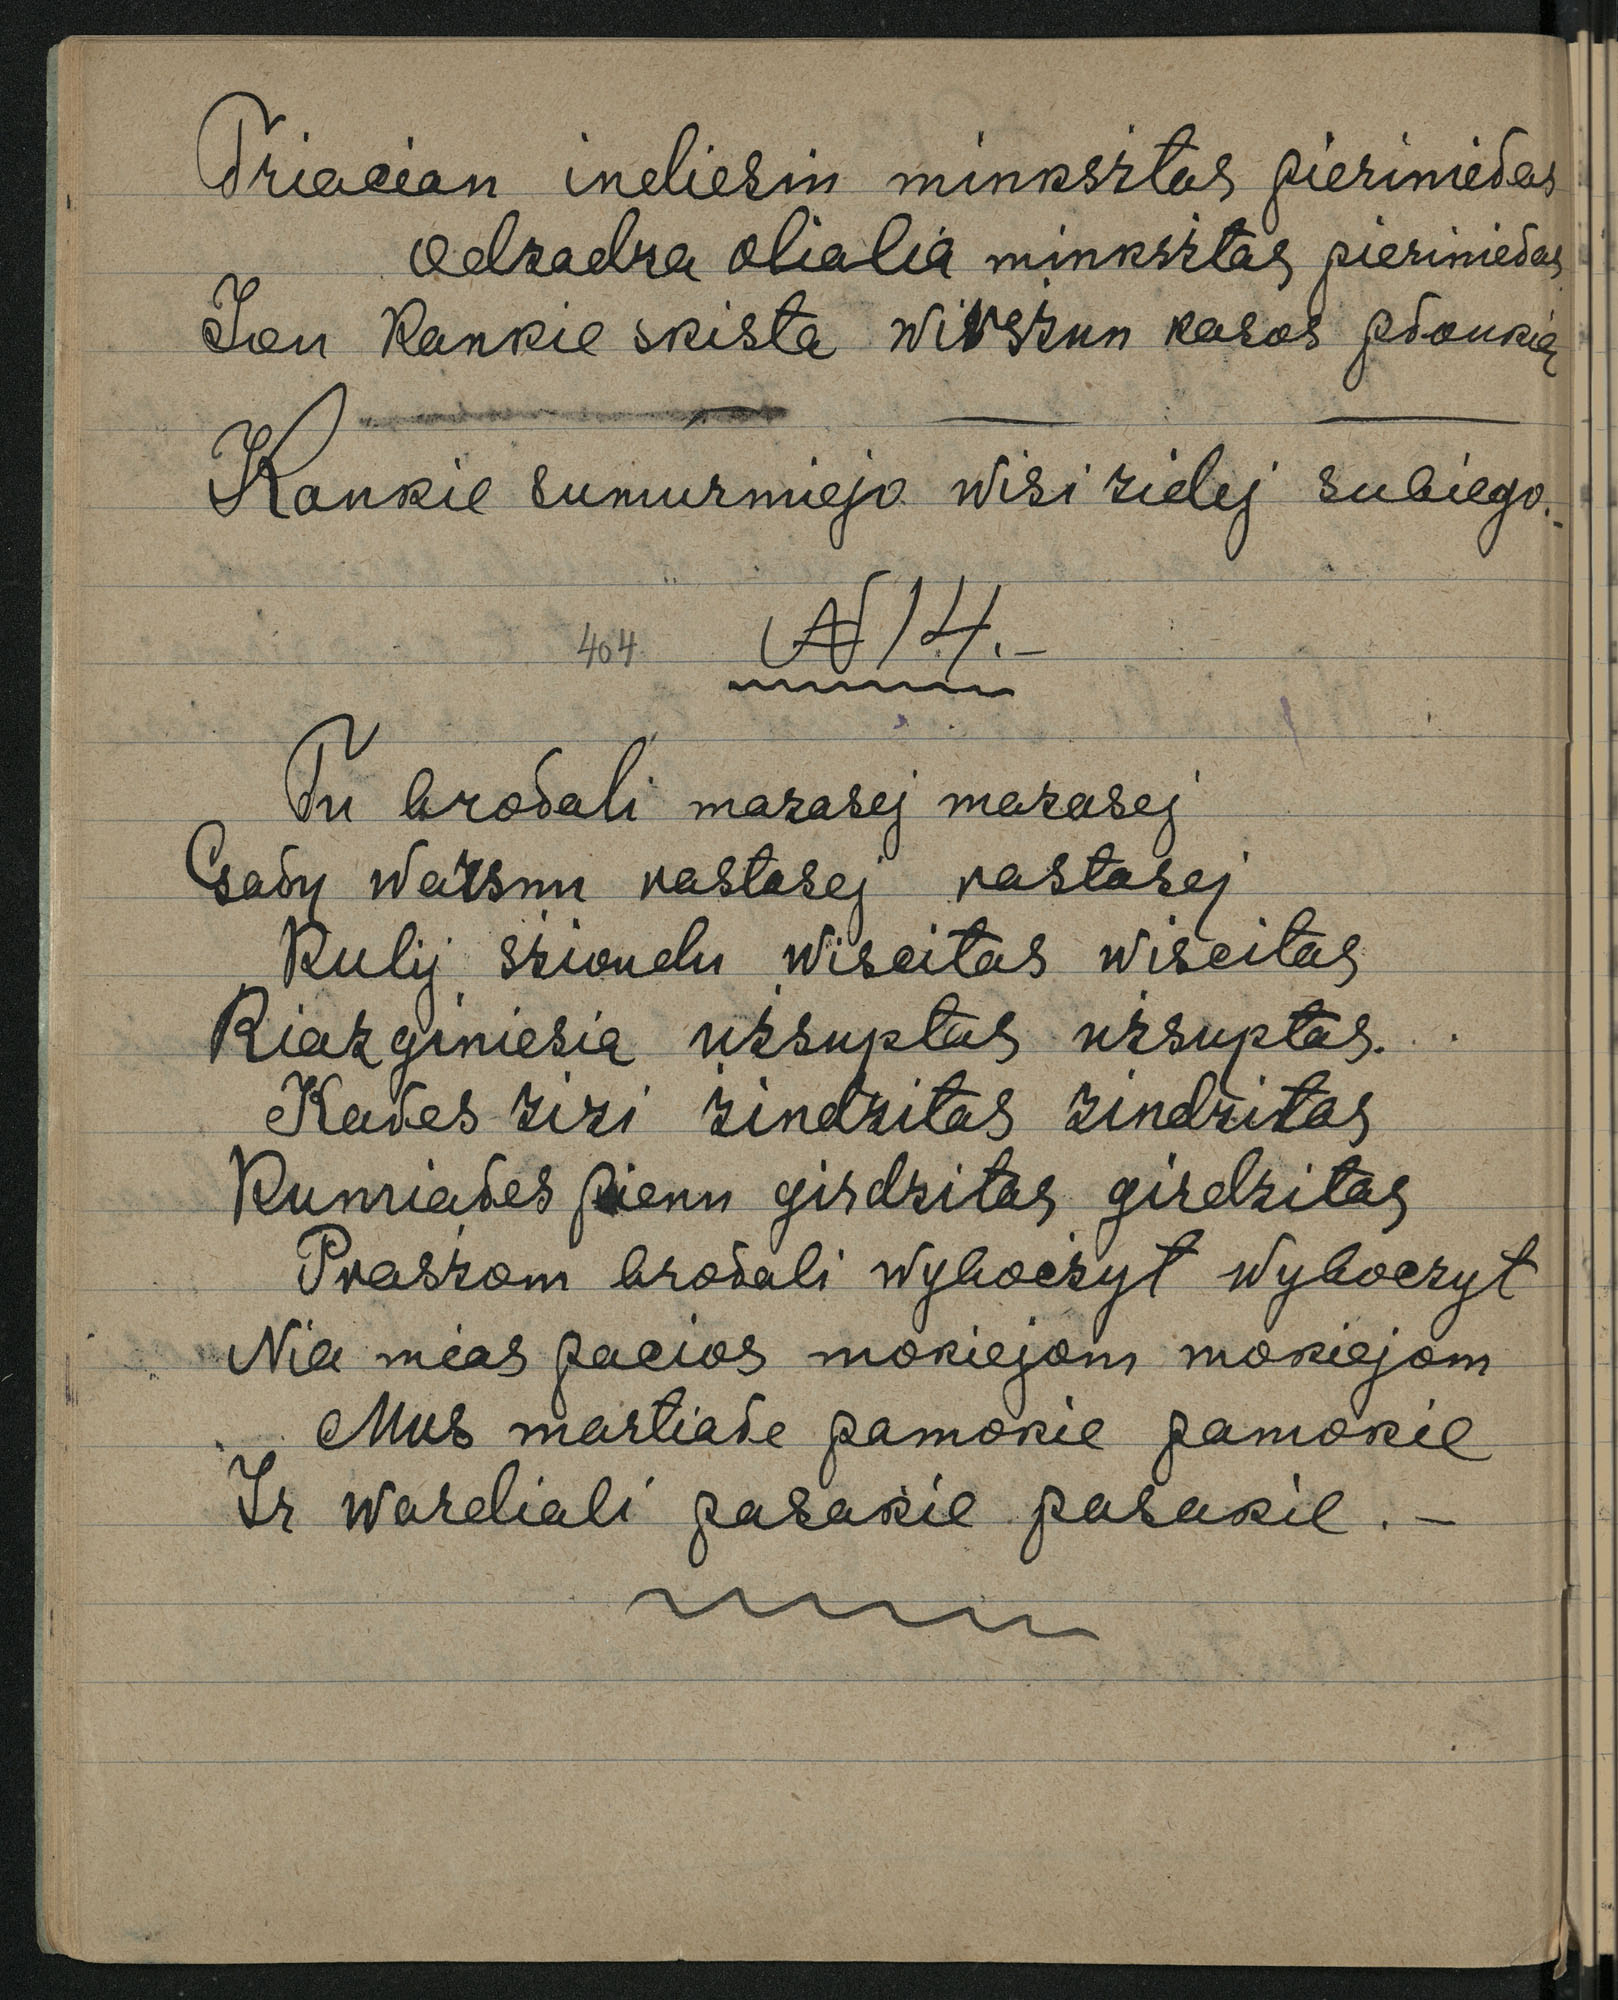 Triacian indiesin minksztas pieriniełas
odzadza olialia minksztas pieriniełas
Jou kankie skista wirszun kasos płoukią
Kankie sumurmiejo wisi zielej subiego.-
404 N 14.-
Tu brołali mazasej mazasej
Gsały warsnu rastasej rastasej
Kulij sziondu wiscitas wiscitas
Riazginiesia użsuptas użsuptas.
Kałes zizi zindzitas zindzitas
Kumiałes pienu girdzitas girdzitas
Praszom brołali wyboczyt wyboczyt
Nia mias pacios mokiejom mokiejom
Mus martiałe pamokie pamokie
Ir wardiali pasakie pasakie.-